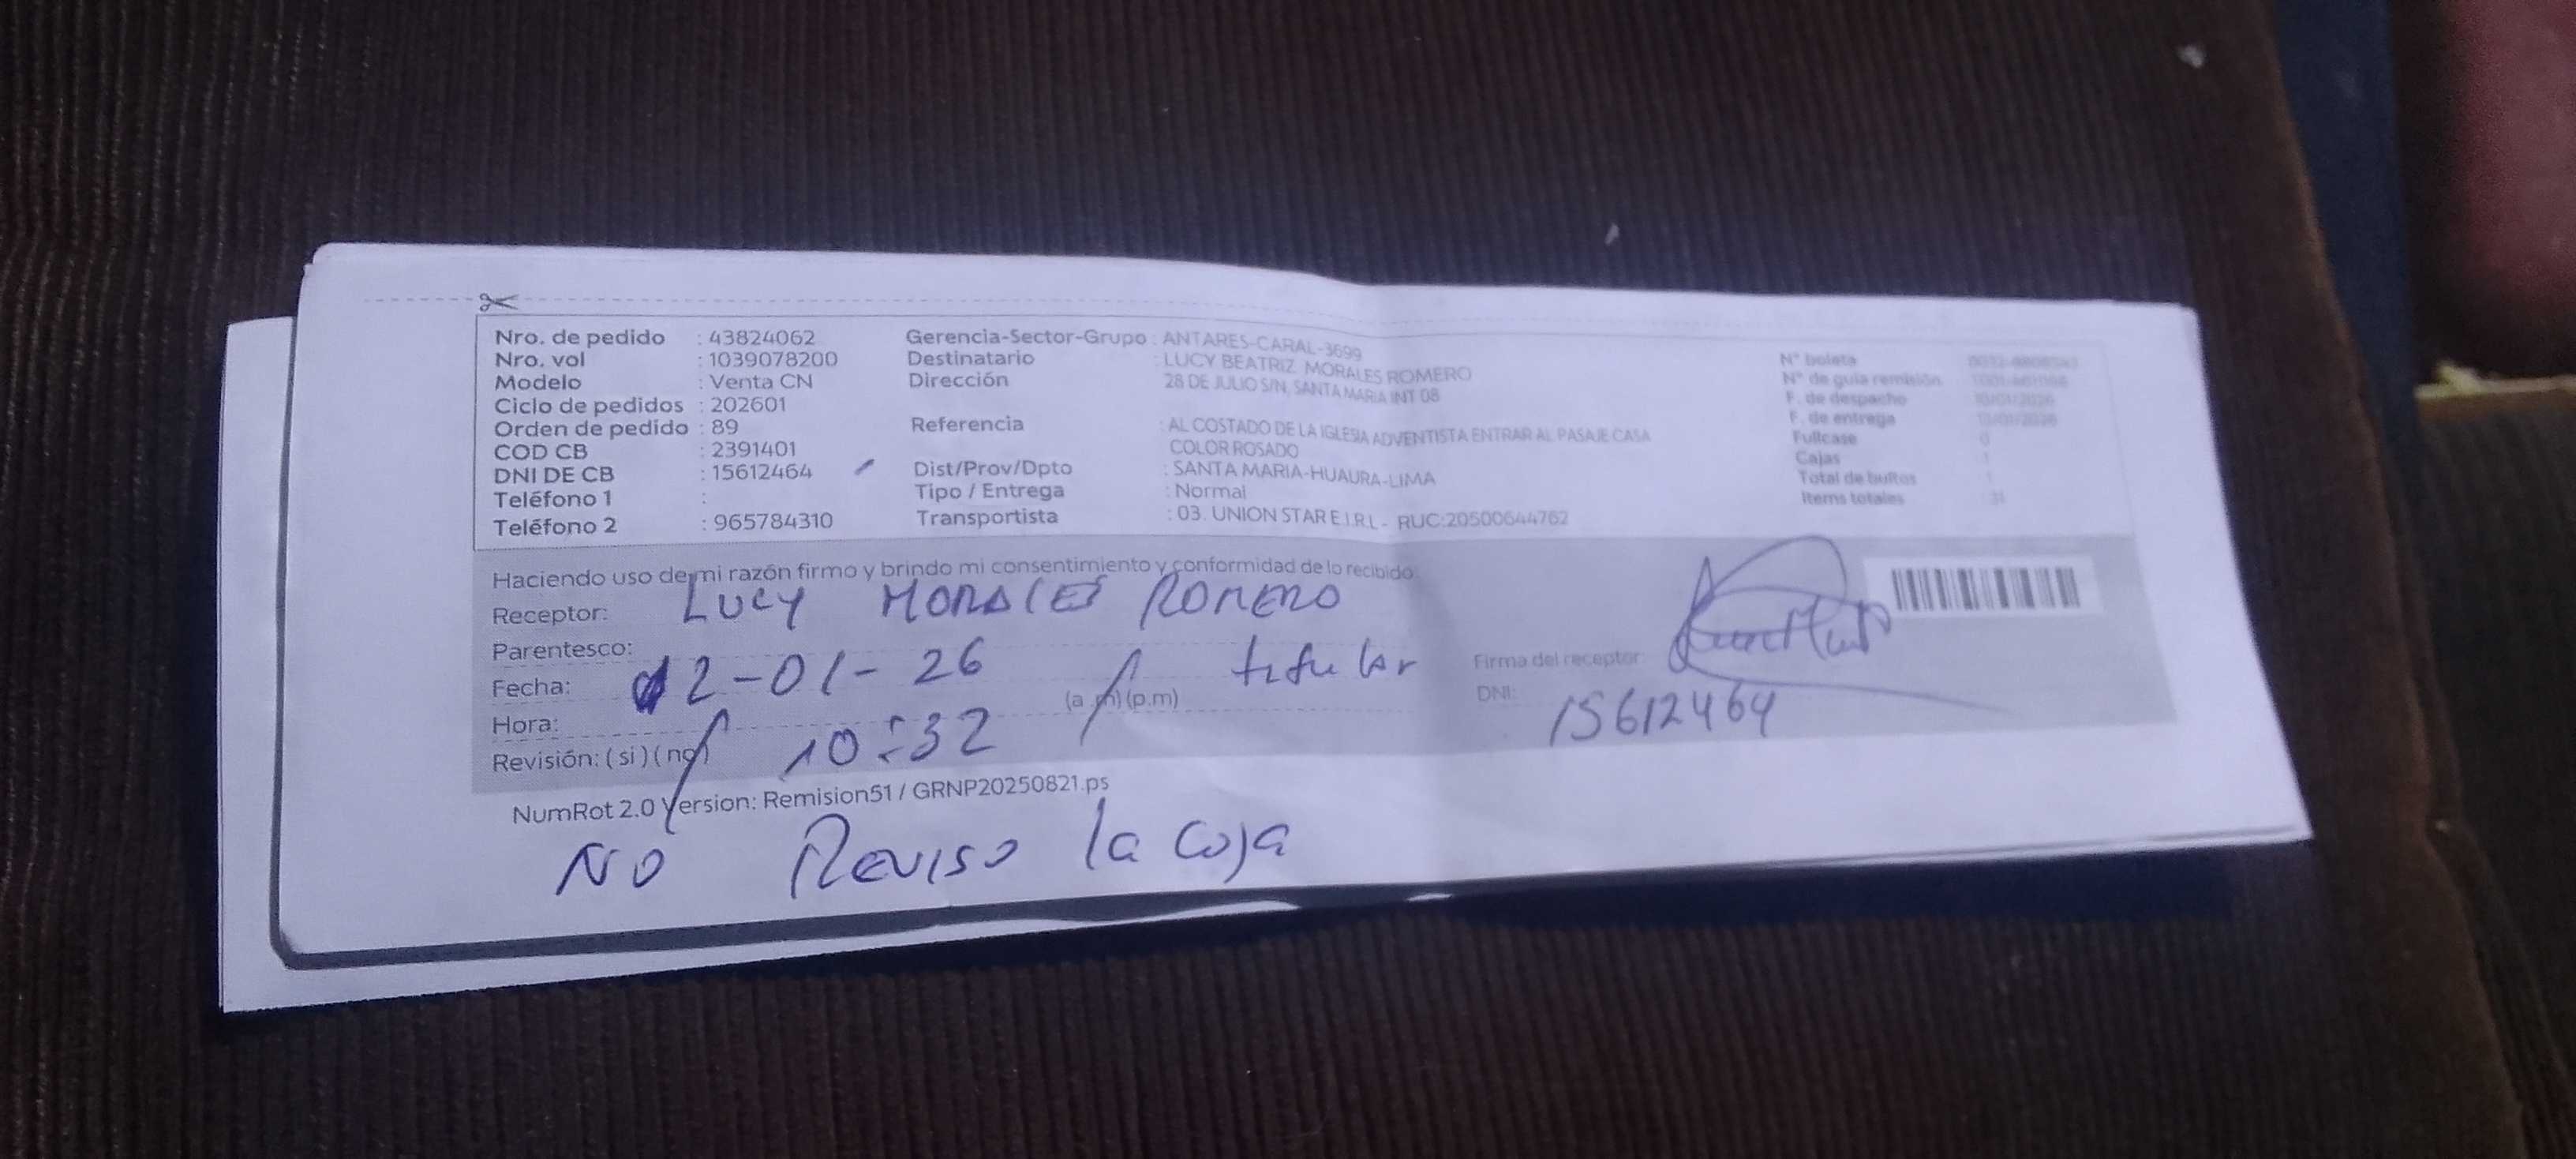 Nro. de pedido : 43824062
Nro. vol : 1039078200
Modelo : Venta CN
Ciclo de pedidos : 202601
Orden de pedido : 89
COD CB : 2391401
DNI DE CB : 15612464
Teléfono 1 :
Teléfono 2 : 965784310
Gerencia-Sector-Grupo : ANTARES-CARAL-3699
Destinatario : LUCY BEATRIZ MORALES ROMERO
Dirección 28 DE JULIO S/N, SANTA MARIA INT 08
Referencia : AL COSTADO DE LA IGLESIA ADVENTISTA ENTRAR AL PASAJE CASA
COLOR ROSADO
Dist/Prov/Dpto : SANTA MARIA-HUAURA-LIMA
Tipo / Entrega : Normal
Transportista : 03. UNION STAR E.I.R.L - RUC:20500644762
N° boleta
N° de guía remisión
F. de despacho
F. de entrega
Fullcase 0
Cajas 1
Total de bultos 1
Items totales
Haciendo uso de mi razón firmo y brindo mi consentimiento y conformidad de lo recibido
Receptor: LUCY MORALES ROMERO
Parentesco: titular
Fecha: 12-01-26
Hora: 10:32 (a.m) (p.m)
Revisión: (si) (no)
Firma del receptor:
DNI: 15612464
NumRot 2.0 Version: Remision51 / GRNP20250821.ps
NO Reviso la caja